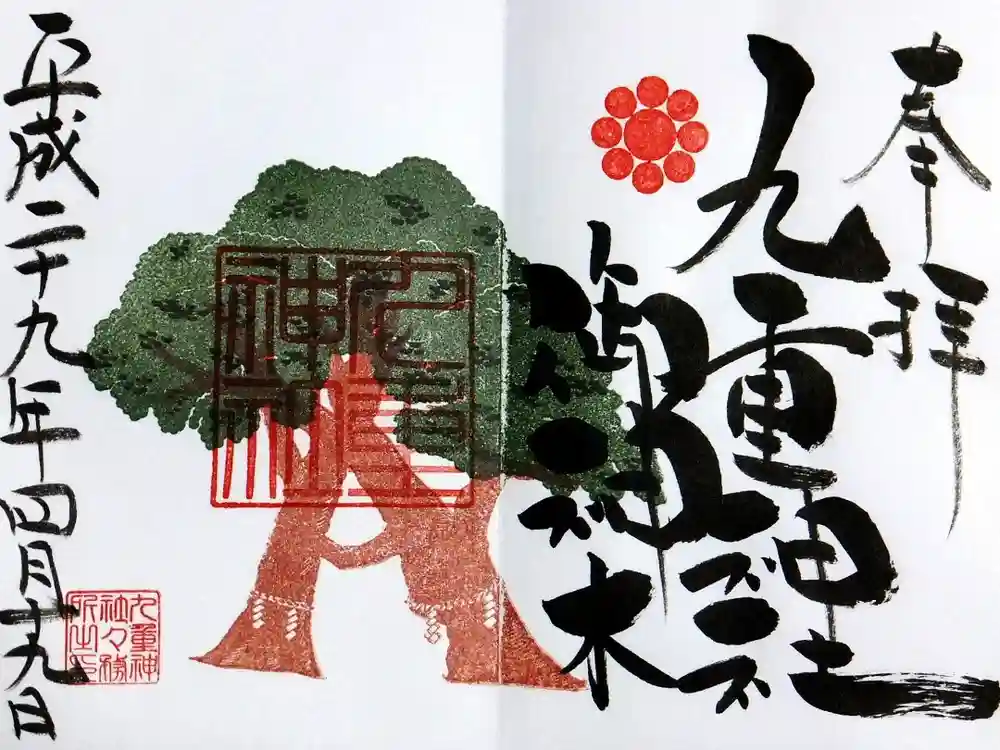 奉拝
九重神社
御神木
九重
神社
平成二十九年四月十九日
九重神
社々務
所之印